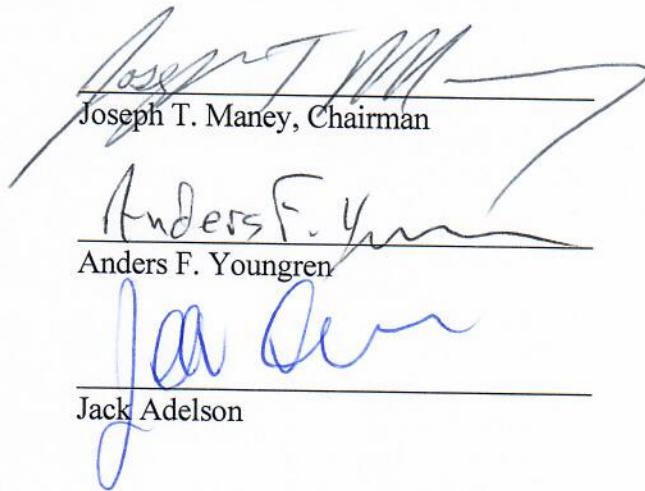 Joseph T. Maney
Joseph T. Maney, Chairman
Anders F. Youngren
Anders F. Youngren
Jack Adelson